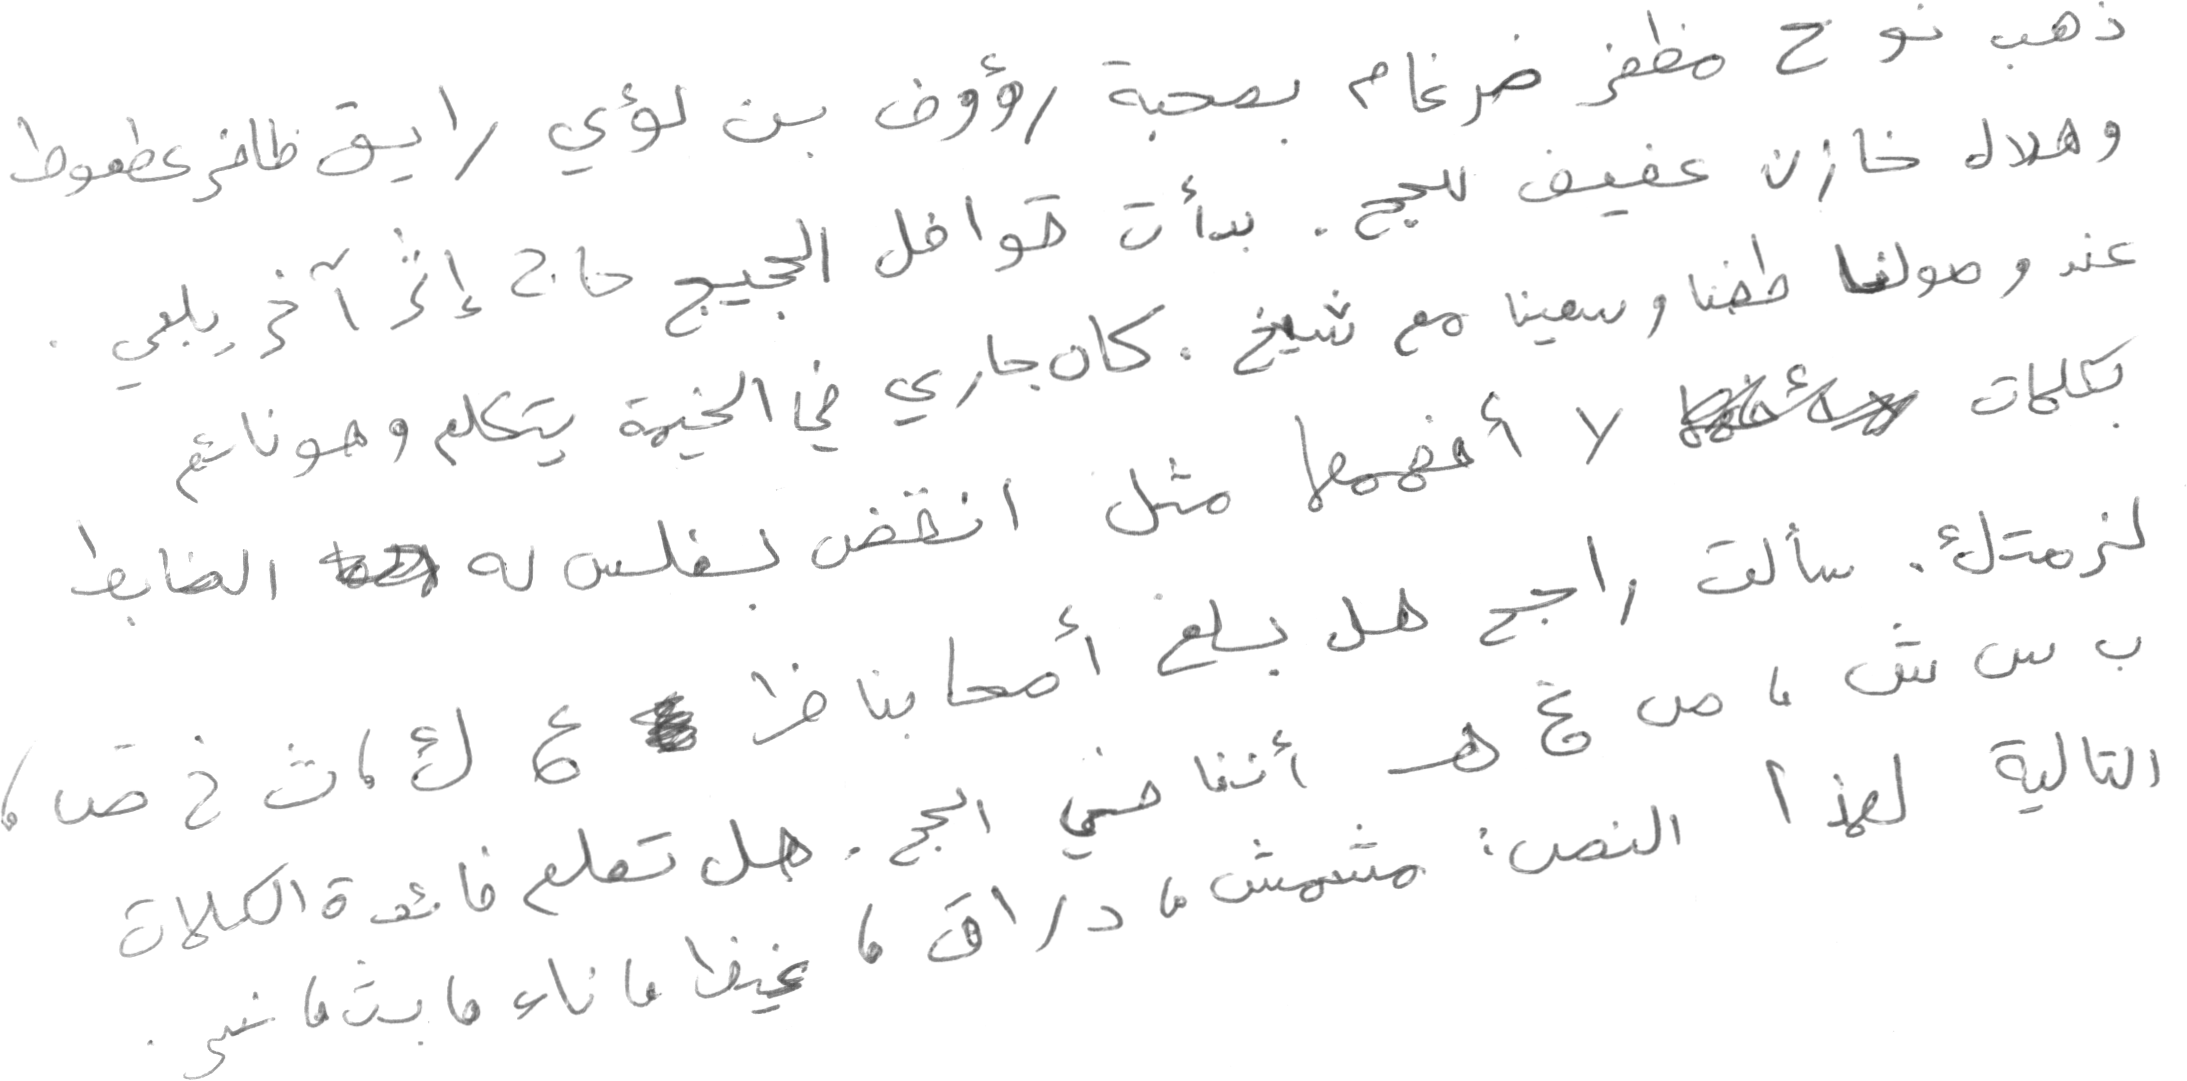 ذهب نوح مظفر ضرغام بصحبة رؤوف بن لؤي رايق ظافر عطعوط
وهلال خازن عفيف للحج. بدأت قوافل الحجيج حاج إثر آخر يلبي.
عند وصولنا طفنا وسعينا مع شيخ. كان جاري في الخيمة يتكلم وهو نائم
بكلمات لا أفهمها مثل انقض بفلس له الضابط
لزمتك. سألت راجح هل بلغ أصحابنا ظ ع ك، ث خ ض،
ب س ش، ص غ هـ أننا في الحج. هل تعلم فائدة الكلمات
التالية لهذا النص: مشمش، دراق، غيظ، ناء، بث،